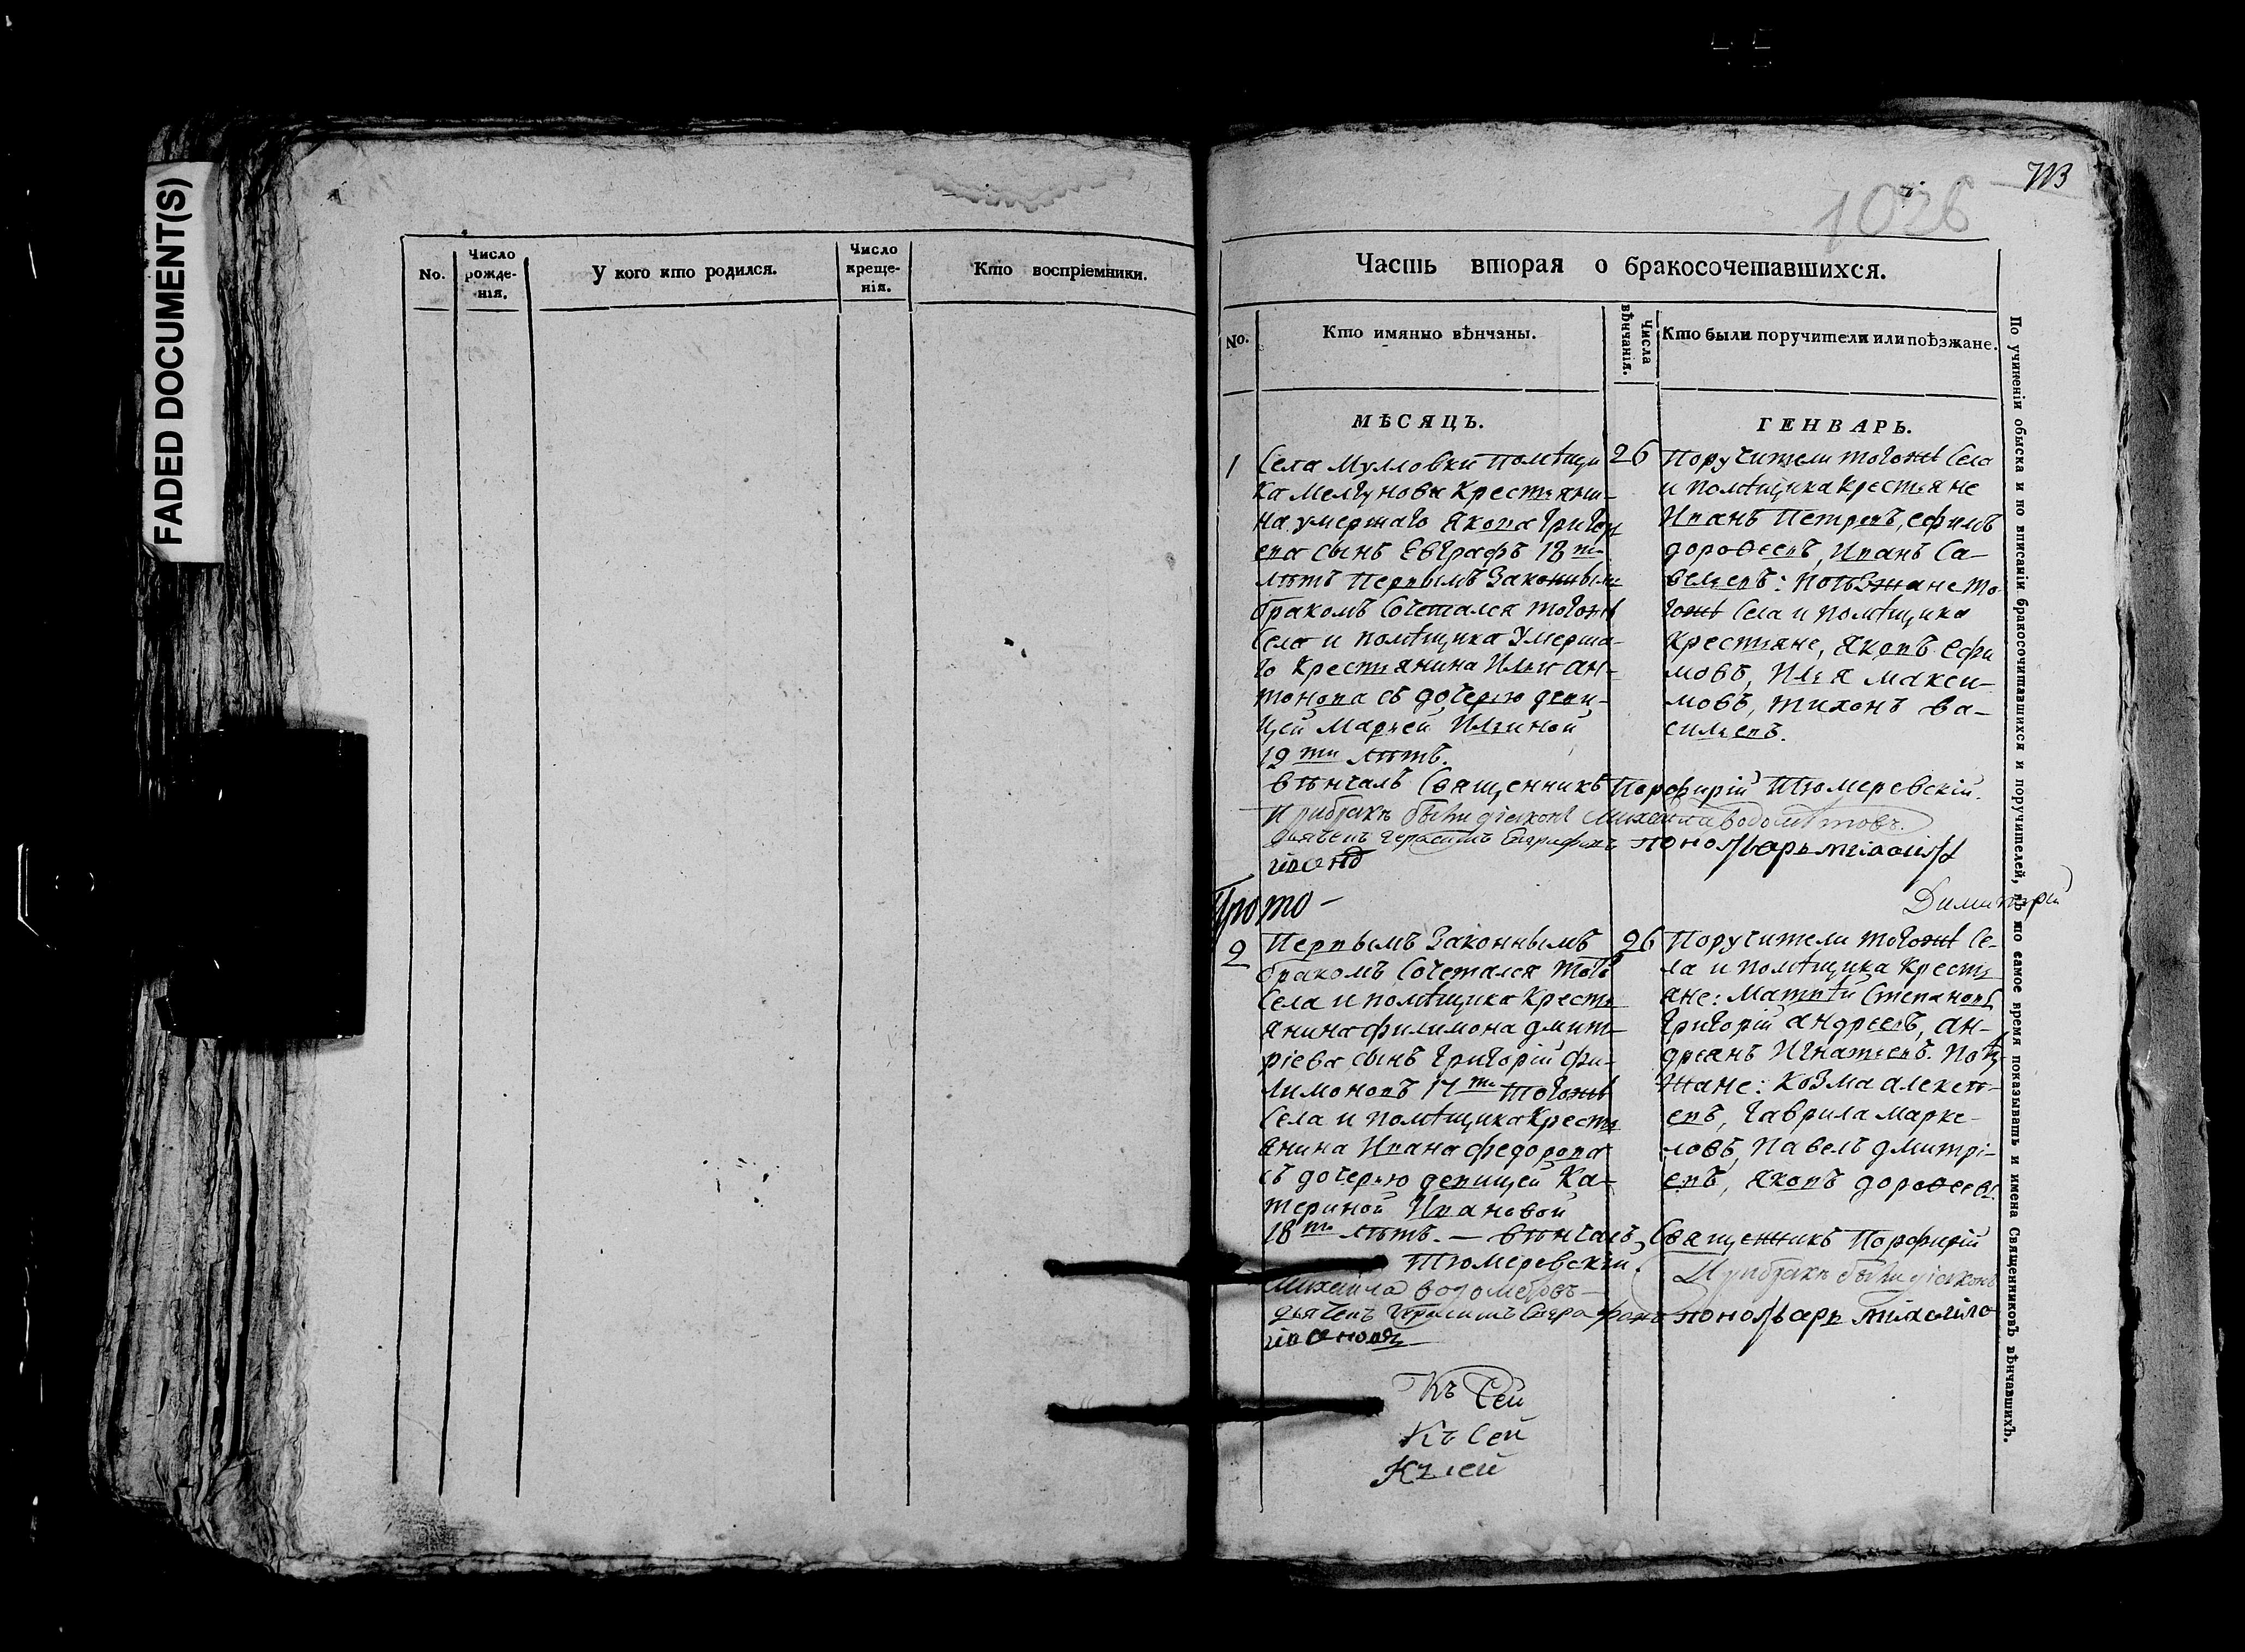 FADED DOCUMENT(S)
No.
Число рожде-нія.
У кого кто родился.
Число креще-нія.
Кто воспріемники.
1026
Часть вторая о бракосочетавшихся.
No.
Кто имянно вѣнчаны.
Числа вѣнчанія.
Кто были поручители или поѣзжане.
МѢСЯЦЪ.
ГЕНВАРЬ.
1
Села Мулловки помѣщи
ка Мелгунова крестьяни-
на умершаго Якова Григор
ева сынъ Евграфъ 18ти
лѣтъ первымъ законнымъ
бракомъ сочетался тогожѣ
села и помѣщика умерша-
го крестьянина Ильи Ан-
тонова съ дочерью деви-
цей Марьей Ильиной
19ти лѣтъ.
26
Поручители тогожѣ села
и помѣщика крестьяне
Иванъ Петровъ, Ефимъ
дороѳеевъ, Иванъ Са-
вельевъ: поѣзжане то
гожѣ села и помѣщика
крестьяне, Яковъ Ефи
мовъ, Илья Макси-
мовъ, Тихонъ Ва-
сильевъ.
вѣнчалъ Священникъ Порфирій Тюмеревскій.
При бракѣ были діаконъ Михаила Водомѣтовъ.
дьячекъ Герасимъ Евграфовъ пономарь
Димитрій
Прото-
2
Первымъ законнымъ
бракомъ сочетался того
села и помѣщика кресть
янина филимона дмит-
ріева сынъ Григорій фи-
лимоновъ 17ти тогожѣ
села и помѣщика кресть
янина Ивана федорова
съ дочерью девицей Ка-
териной Ивановой
18ти лѣтъ. — вѣнчалъ Священникъ Порфирій
Тюмеревскій.
26
Поручители тогожѣ се-
ла и помѣщика кресть
яне: Матвѣй Степановъ
Григорій андреевъ, ан-
дреанъ Игнатьевъ. поѣз
жане: Козма алексѣ-
евъ, Гаврила Марке-
ловъ, Павелъ дмитрі-
евъ, Яковъ дороѳеевъ.
При бракѣ были діаконъ
Михаила Водометовъ
дьячекъ Герасимъ Евграфовъ пономарь
Къ Сей
Къ Сей
Къ сей
По учиненіи обыска и по вписаніи бракосочитавшихся и поручителей, въ то самое время показывать и имена Священниковъ вѣнчавшихъ.